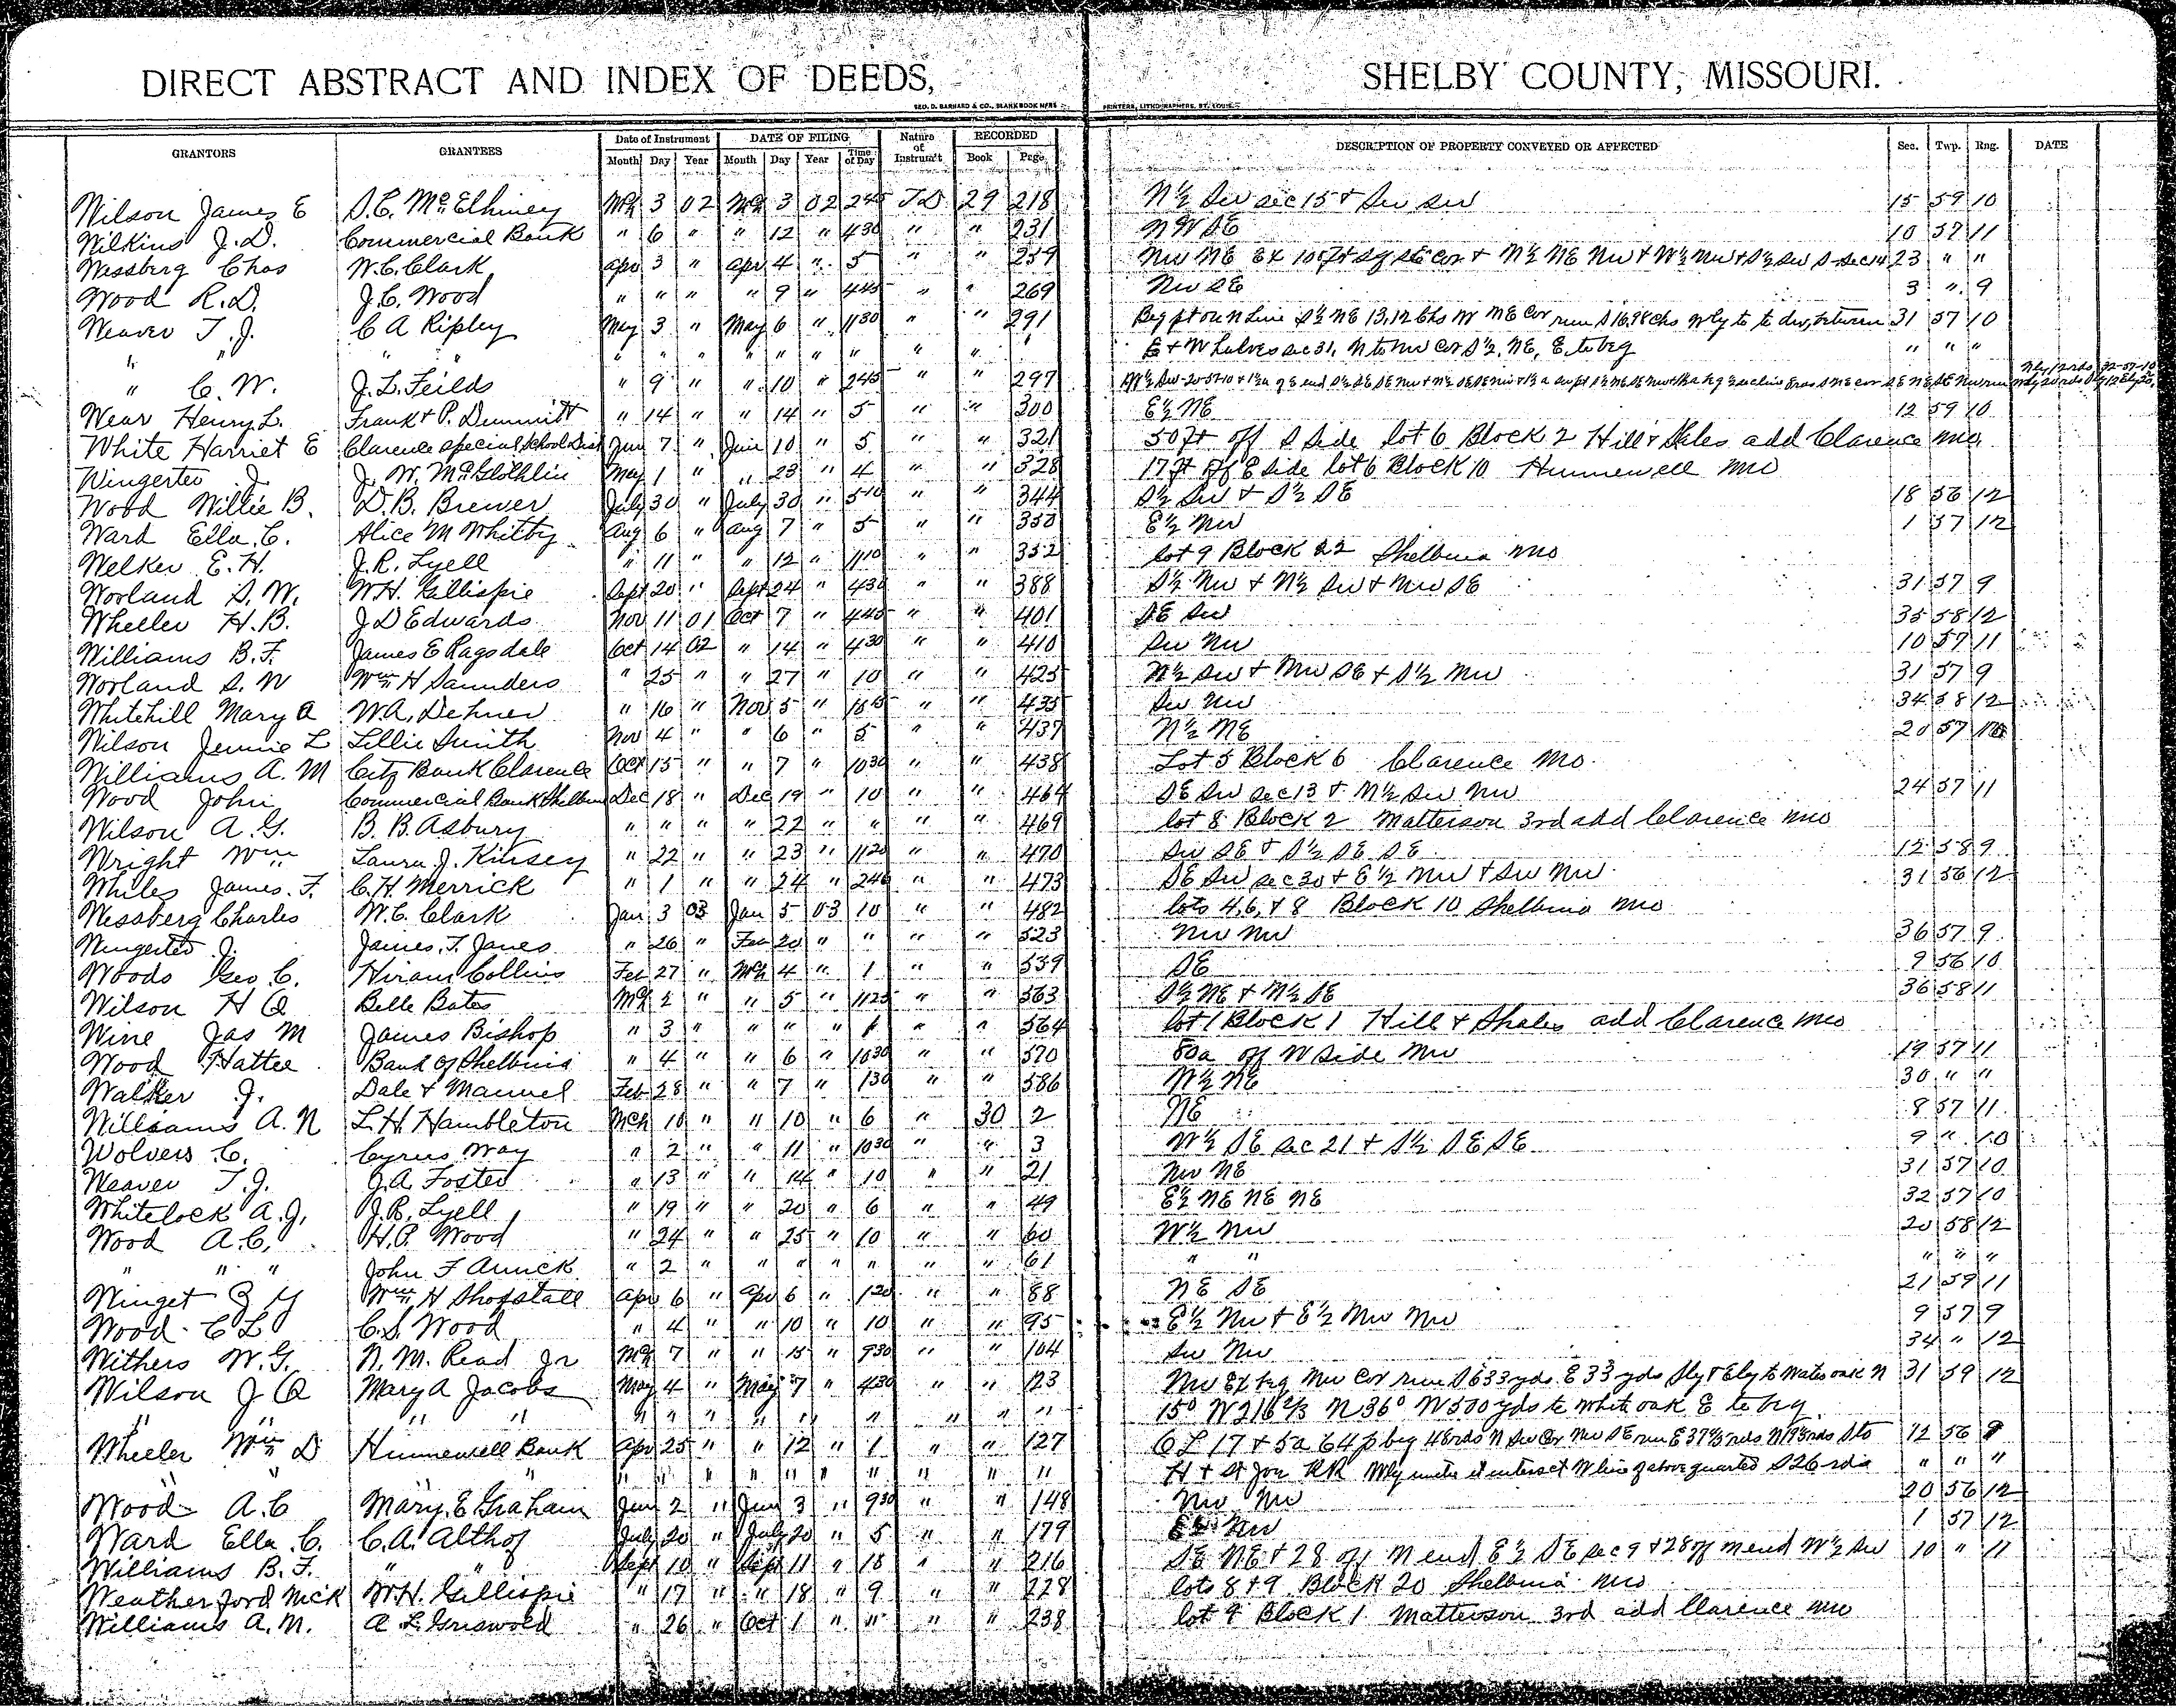 DIRECT ABSTRACT AND INDEX OF DEEDS, SHELBY COUNTY, MISSOURI.
GEO. D. BARNARD & CO., BLANK BOOK MFRS PRINTERS, LITHOGRAPHERS, ST. LOUIS.
GRANTORS GRANTEES Date of Instrument DATE OF FILING Nature of Instrum't RECORDED DESCRIPTION OF PROPERTY CONVEYED OR AFFECTED Sec. Twp. Rng. DATE
Month Day Year Month Day Year Time of Day Book Page
Wilson James E S.C. McElhiney Mch 3 02 Mch 3 02 245 TD 29 218 N½ Sw sec 15 & Sw Sw 15 59 10
Wilkins J.D. Commercial Bank " 6 " " 12 " 430 " " 231 NW SE 10 57 11
Wessberg Chas W.C. Clark Apr 3 " Apr 4 " 5 " " 259 Nw NE Ex 10 ft sq SE cor & N½ NE Nw & W½ Nw & S½ Sw S sec 14 23 " "
Wood R.D. J.C. Wood " " " " 9 " 445 " " 269 Nw SE 3 " 9
Weaver T.J. C A Ripley May 3 " May 6 " 1130 " " 291 Beg pt on N Line S½ NE 13,12 Chs W NE Cor run S 16,98 chs Wly to to div, between 31 57 10
" " " " " " " " " " " " E & W halves sec 31, N to Nw Cor S½, NE, E to beg " " "
" C.W. J.L. Feilds " 9 " " 10 " 245 " " 297
Wear Henry L. Frank & P. Dummitt " 14 " " 14 " 5 " " 300 E½ NE 12 59 10
White Harriet E Clarence Special School Dist Jun 7 " Jun 10 " 5 " " 321 50 ft off S Side lot 6 Block 2 Hill & Shales add Clarence Mo
Wingerter J. J. W. McGlothlin May 1 " " 23 " 4 " " 328 17 ft off E side lot 6 Block 10 Hunnewell Mo
Wood Willie B. D.B. Brewer July 30 " July 30 " 510 " " 344 S½ Sw & S½ SE 18 56 12
Ward Ella C. Alice M Whitby Aug 6 " Aug 7 " 5 " " 350 E½ Nw 1 57 12
Welker E.H. J.R. Lyell " 11 " " 12 " 1110 " " 352 lot 9 Block 22 Shelbina Mo
Worland S.W. W.H. Gillispie Sept 20 " Sept 24 " 430 " " 388 S½ Nw & N½ Sw & Nw SE 31 57 9
Wheeler H.B. J D Edwards Nov 11 01 Oct 7 " 445 " " 401 SE Sw 35 58 12
Williams B.F. James E Ragsdale Oct 14 02 " 14 " 430 " " 410 Sw Nw 10 57 11
Worland S.W Wm H Saunders " 25 " " 27 " 10 " " 425 N½ Sw & Nw SE & S½ Nw 31 57 9
Whitehill Mary A W.A. Dehner " 16 " Nov 5 " " " 435 Sw Nw 34 58 12
Wilson Jennie L Lillie Smith Nov 4 " " 6 " 5 " " 437 N½ NE 20 57 10
Williams A.M Citz Bank Clarence Oct 15 " " 7 " 1030 " " 438 Lot 5 Block 6 Clarence Mo
Wood John Commercial Bank Shelbina Dec 18 " Dec 19 " 10 " " 464 SE Sw sec 13 & N½ Sw Nw 24 57 11
Wilson A.G. B.B. Asbury " " " " 22 " " " " 469 lot 8 Block 2 Matterson 3rd add Clarence Mo
Wright Wm Laura J. Kinsey " 22 " " 23 " 1120 " " 470 Sw SE & S½ SE SE 12 58 9
Whiles James F. C.H. Merrick " 1 " " 24 " 240 " " 473 SE Sw sec 30 & E½ Nw & Sw Nw 31 56 12
Wessberg Charles W.C. Clark Jan 3 03 Jan 5 03 10 " " 482 lots 4, 6, & 8 Block 10 Shelbina Mo
Wingerter J. James T. Janes " 26 " Feb 20 " " " " 523 Nw Nw 36 57 9
Woods Geo C. Hiram Collins Feb 27 " Mch 4 " 1 " " 539 SE 9 56 10
Wilson H Q Belle Bates Mch 2 " " 5 " 1125 " " 563 S½ NE & N½ SE 36 58 11
Wine Jas M James Bishop " 3 " " " " 1 " " 564 lot 1 Block 1 Hill & Shales add Clarence Mo
Wood Hattee Bank of Shelbina " 4 " " 6 " 1030 " " 570 80a off W Side Nw 19 57 11
Walker J. Dale & Manuel Feb 28 " " 7 " 130 " " 586 W½ NE 30 " "
Williams A.N L.H. Hambleton Mch 10 " " 10 " 6 " 30 2 NE 8 57 11
Wolvers C. Cyrus Way " 2 " " 11 " 1030 " " 3 W½ SE sec 21 & S½ SE SE 9 " 10
Weaver T.J. J.A. Foster " 13 " " 14 " 10 " " 21 Nw NE 31 57 10
Whitelock A.J. J.R. Lyell " 19 " " 20 " 6 " " 49 E½ NE NE NE 32 57 10
Wood A.C. H.P. Wood " 24 " " 25 " 10 " " 60 W½ Nw 20 58 12
" " " John F Amick " 2 " " " " " " " 61 " " " " "
Winget Z Y Wm H Shofstall Apr 6 " Apr 6 " 120 " " 88 NE SE 21 59 11
Wood C L C.S. Wood " 4 " " 10 " 10 " " 95 E½ Nw & E½ Nw Nw 9 57 9
Withers W.G. N.M. Read Jr Mch 7 " " 15 " 930 " " 104 Sw Nw 34 " 12
Wilson J Q Mary A Jacobs May 4 " May 7 " 430 " " 123 Nw Ex beg Nw Cor run S 633 yds E 33 yds Sly & Ely to Wates oak N 31 59 12
" " " " " " " " " " " " " 15° W 216 2/3 N 36° W 500 yds to White oak E to beg
Wheeler Wm D Hunnewell Bank Apr 25 " " 12 " 1 " " 127 O L 17 & 5a 64p beg 48 rds N Sw Cor Nw SE run E 37 rds N 19 rds S to 12 56 9
" " " " " " " " " " " " " H & St Joe RR Wly until it intersect W line of above quarter S 26 rds " " "
Wood A.C Mary E Graham Jun 2 " Jun 3 " 930 " " 148 Nw Nw 20 56 12
Ward Ella C. C.A. Althof July 20 " July 20 " 5 " " 179 E½ Nw 1 57 12
Williams B.F. " " Sept 10 " Sept 11 " 18 " " 216 SE NE & 28 off N end E½ SE sec 9 & 28 off N end W½ Sw 10 " 11
Weatherford Nick W.H. Gillispie " 17 " " 18 " 9 " " 228 lots 8 & 9 Block 20 Shelbina Mo
Williams A.M. A L Griswold " 26 " Oct 1 " " " " 238 lot 9 Block 1 Matterson 3rd add Clarence Mo